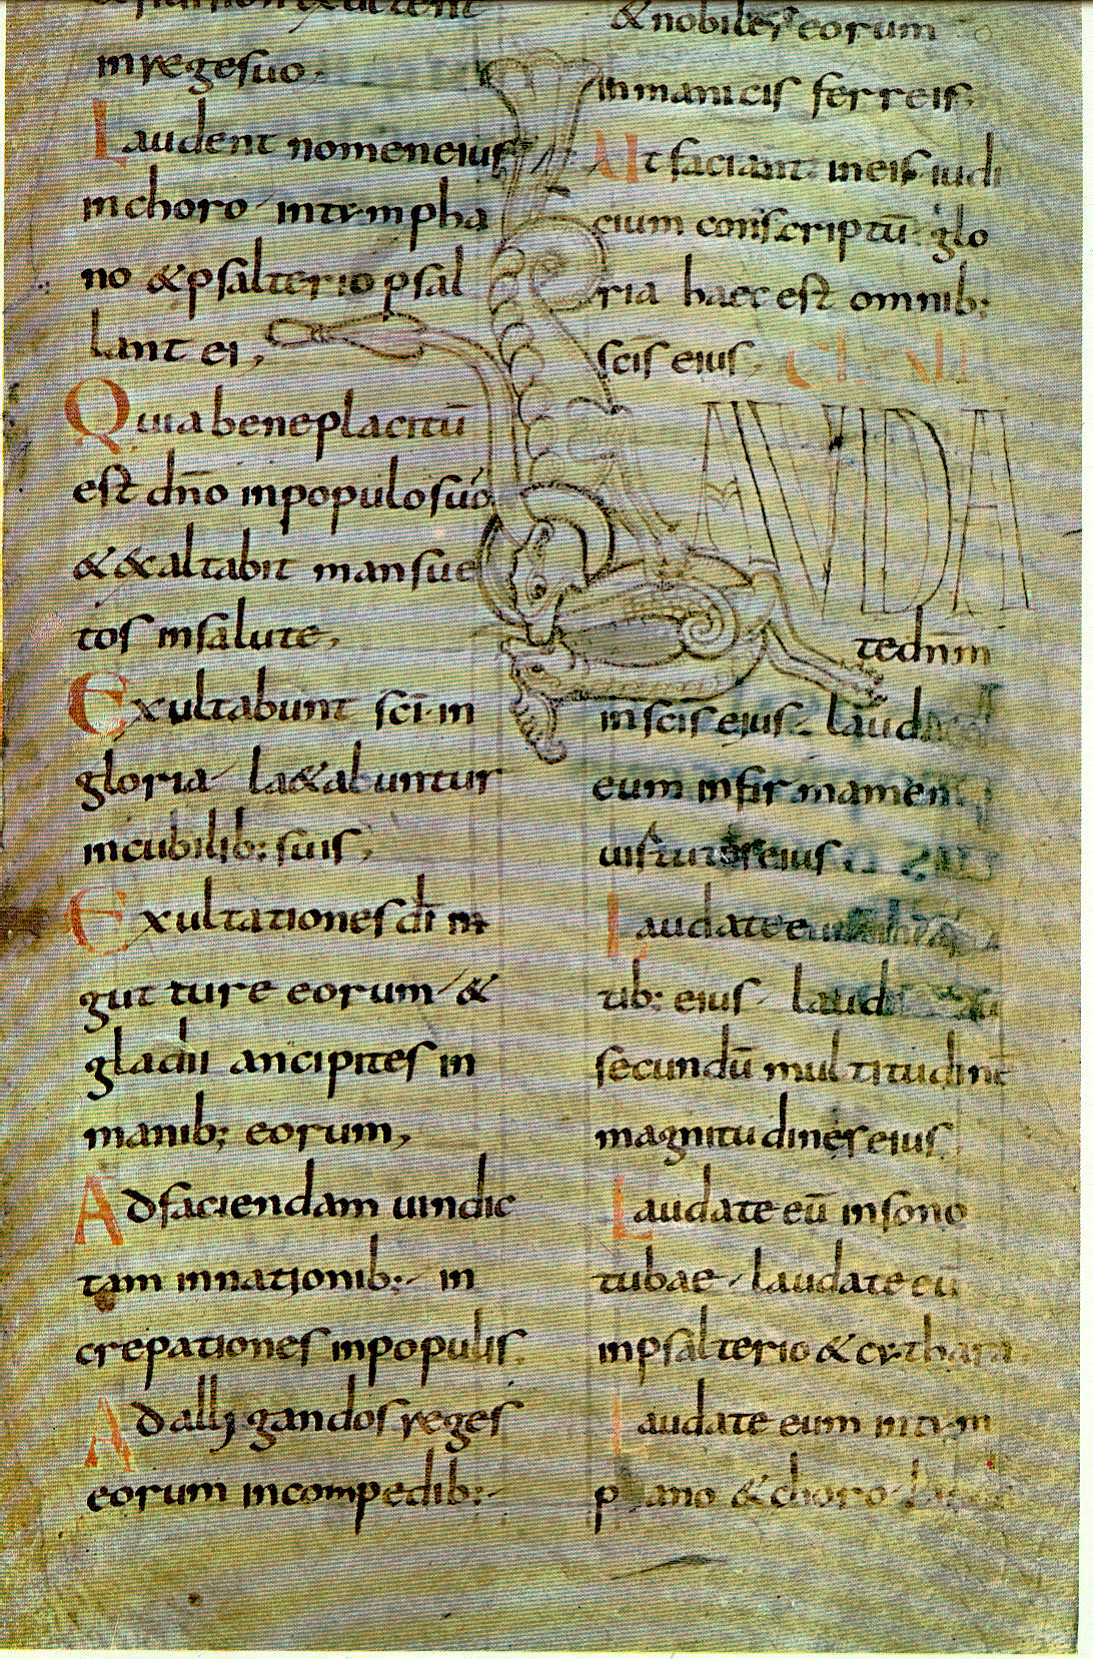 exultent
in rege suo.
Laudent nomen eius
in choro in tympha
no & psalterio psal
lant ei,
Quia beneplacitū
est dn̄o in populo suo
& exaltabit mansue
tos in salute,
Exultabunt sc̄i in
gloria laetabuntur
in cubilib; suis,
Exultationes dī in
gutture eorum &
gladii ancipites in
manib; eorum,
Ad faciendam uindic
tam in nationib; in
crepationes in populis.
Ad alligandos reges
eorum in compedib;
& nobiles eorum
in manicis ferreis.
Ut faciant in eis iudi
cium conscriptū glo
ria haec est omnib;
sc̄is eius.
LAUDA
te dn̄m
in sc̄is eius. laudate
eum in firmamen
uirtutis eius.
Laudate eum
tib; eius. laudate
secundū multitudinē
magnitudinis eius.
Laudate eū in sono
tubae laudate eū
in psalterio & cythara
Laudate eum in tym
pano & choro